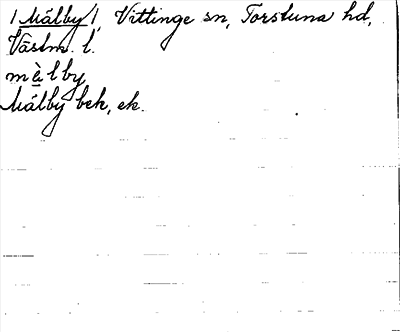 /Målby/, Vittinge sn, Torstuna hd,
Västm. l.
mὲlby
Målby bek, ek.